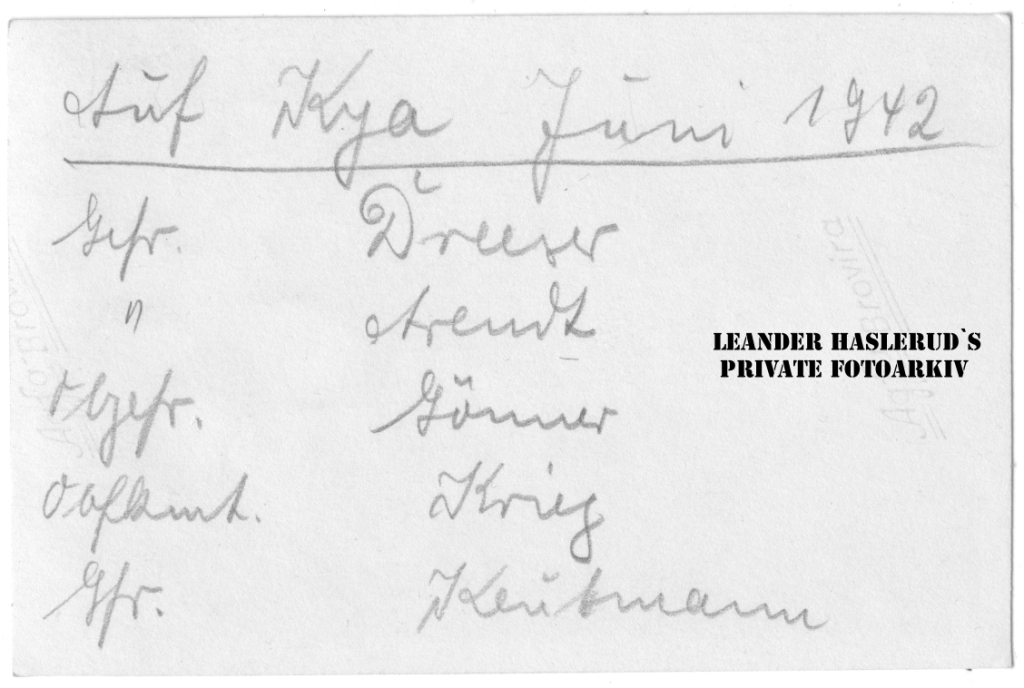 Auf Kya Juni 1942
Gefr. Dreeser
" Arendt
Obgefr. Gönner
Krieg
Gfr. Keutmann
LEANDER HASLERUD`S
PRIVATE FOTOARKIV
Agfa Brovira